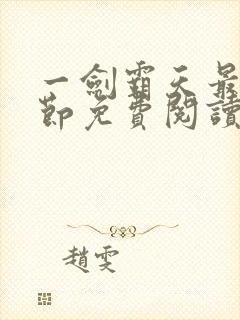 一劍霸天最
節免費閱讀
趙雯